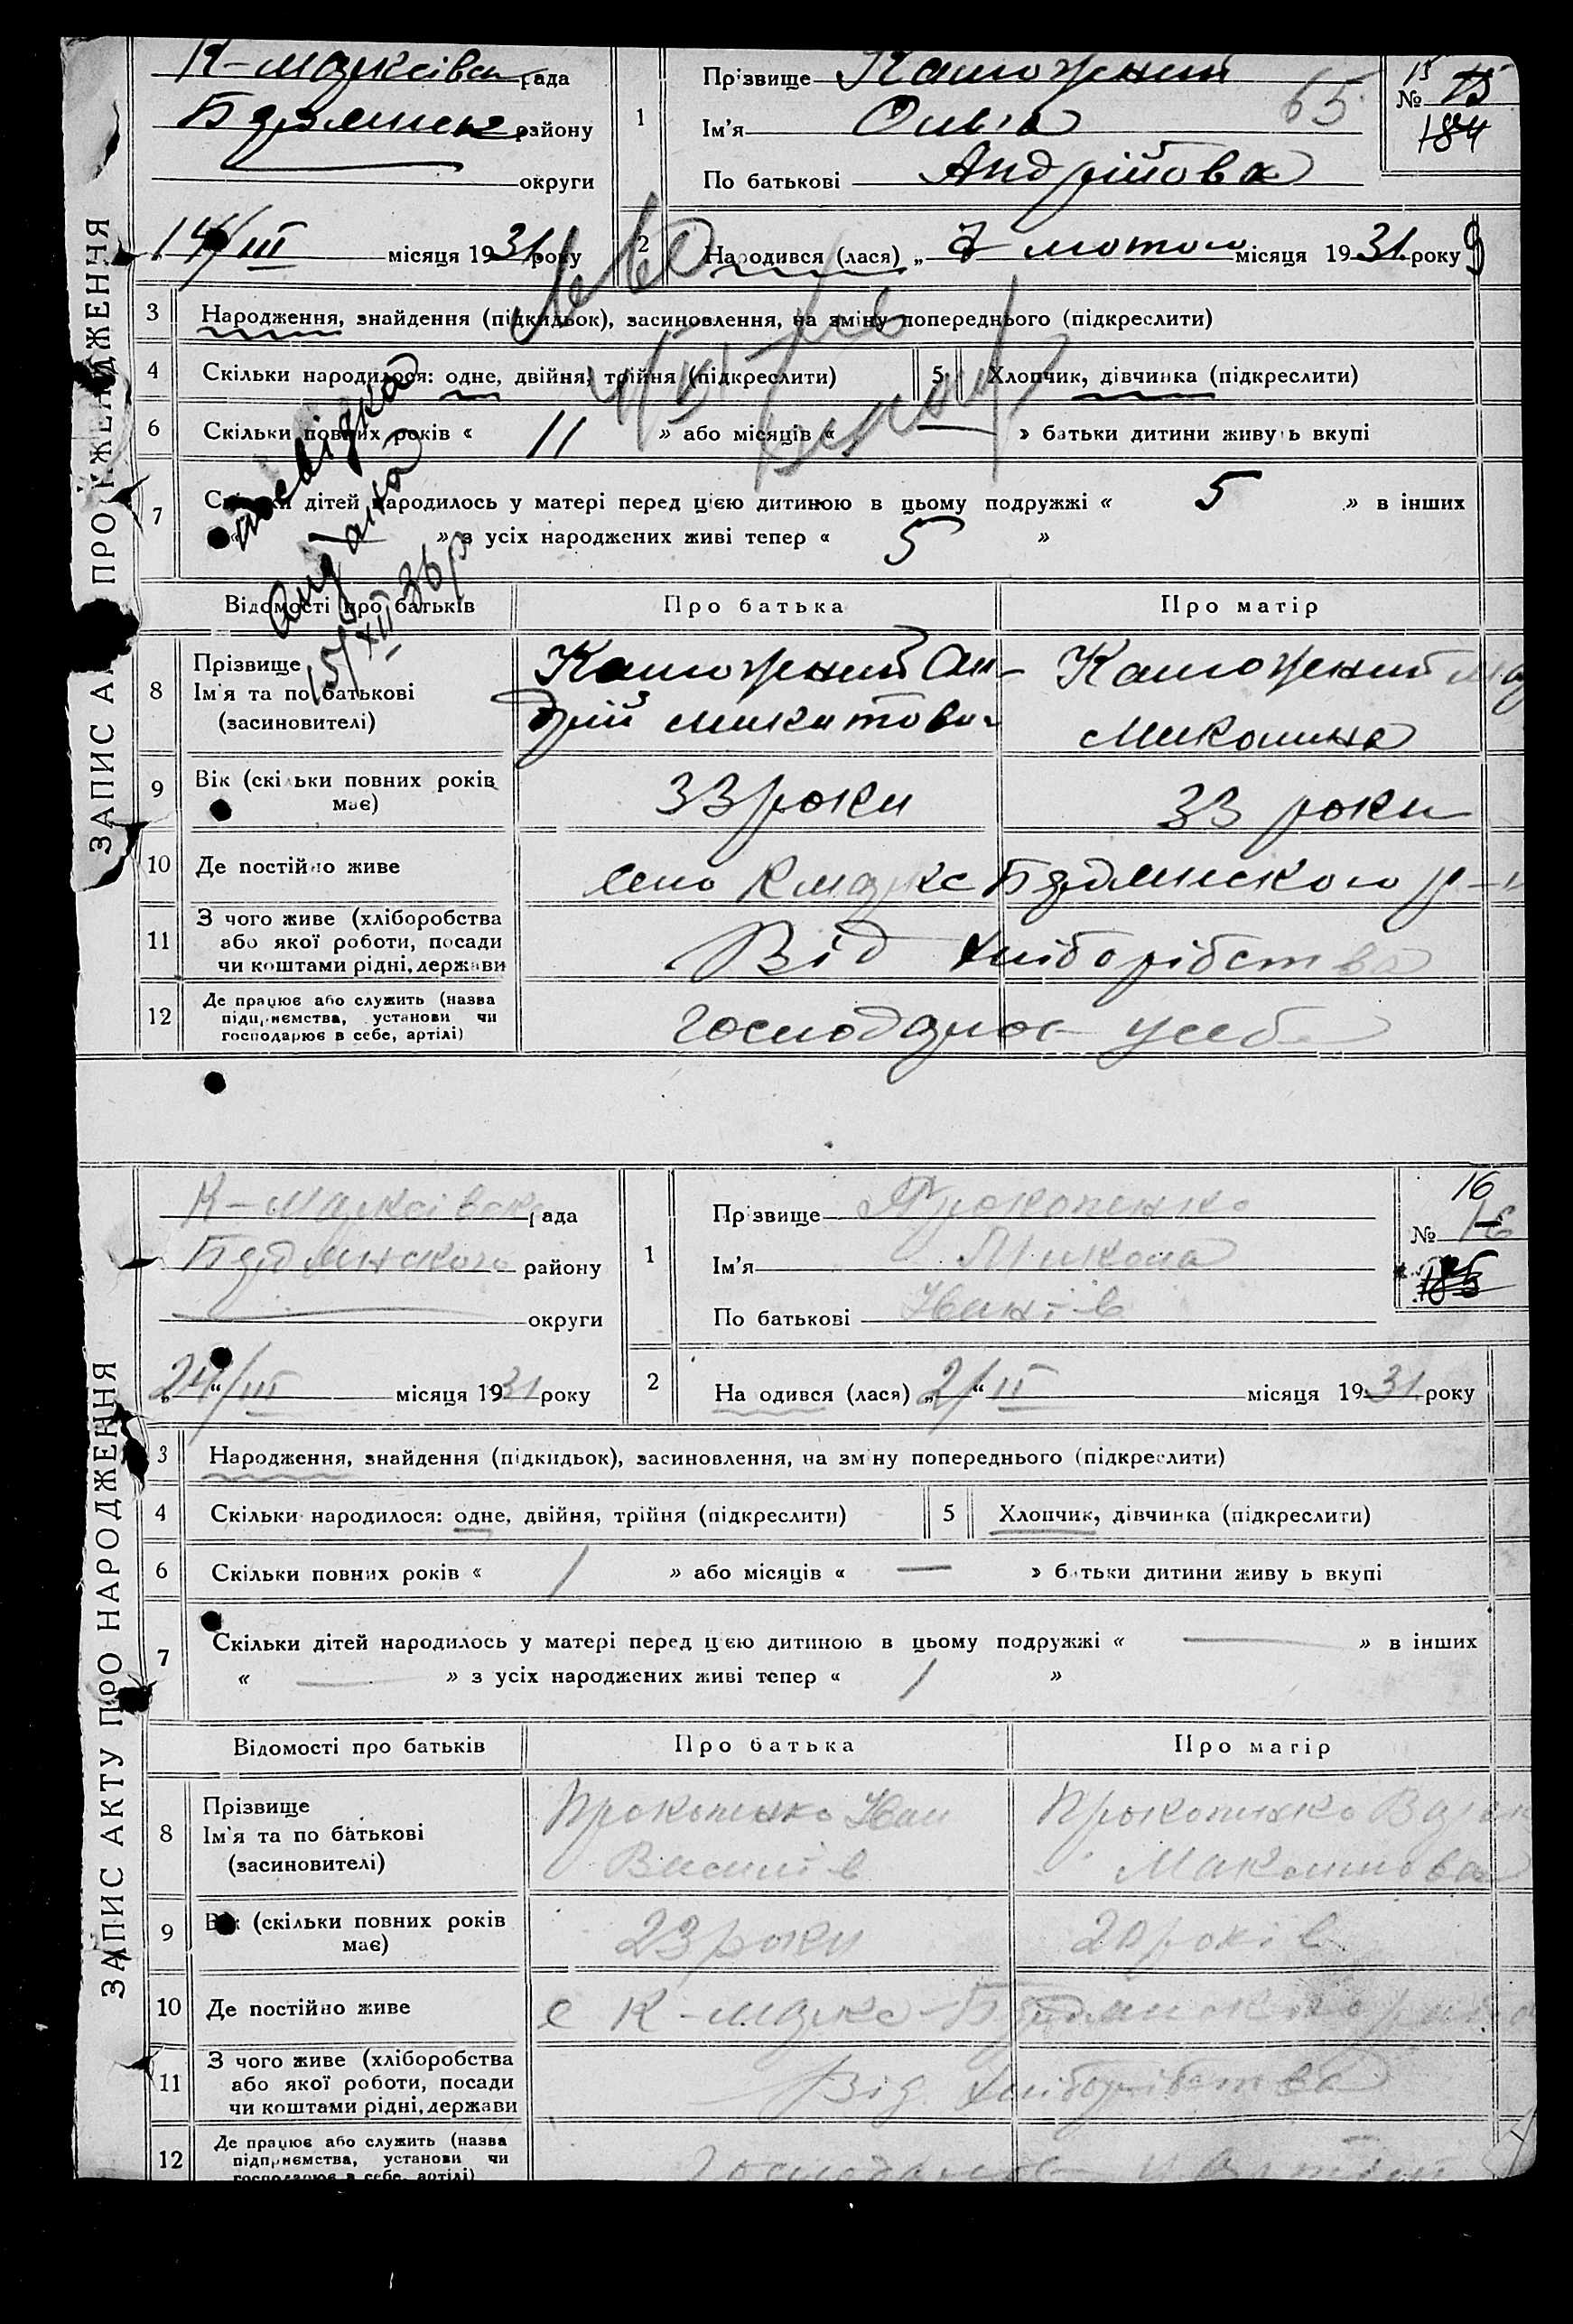 ЗАПИС АКТУ ПРО НАРОДЖЕННЯ
К-марксівськ рада
району
округи
14/III місяця 1931 року
1 Прізвище
Ім'я Ольга
По батькові Андрійовна
65
15
№ 15
184
2 Народився (лася) „ 7 лютого місяця 1931 року
3 Народження, знайдення (підкидьок), засиновлення, на зміну попереднього (підкреслити)
4 Скільки народилося: одне, двійня, трійня (підкреслити) 5 Хлопчик, дівчинка (підкреслити)
6 Скільки повних років « 11 » або місяців « — » батьки дитини живуть вкупі
7 Скільки дітей народилось у матері перед цією дитиною в цьому подружжі « 5 » в інших
« » з усіх народжених живі тепер « 5 »
посвідка
видана
15/XII 36 р
Відомості про батьків Про батька Про матір
8 Прізвище
Ім'я та по батькові
(засиновителі)
Андрій Микитович
Миколина
9 Вік (скільки повних років має) 33 роки 33 роки
10 Де постійно живе село К маркс Бердянского р-н
11 З чого живе (хліборобства
або якої роботи, посади
чи коштами рідні, держави
Від хліборібства
12 Де працює або служить (назва
підприємства, установи чи
господарює в себе, артілі)
Господарює у себе
ЗАПИС АКТУ ПРО НАРОДЖЕННЯ
К-Марксівська рада
Бердянского району
округи
„24/“ III місяця 1931 року
1 Прізвище Прокопенко
Ім'я Микола
По батькові Іванів
16
№ 16
185
2 Народився (лася) „2/“ II місяця 1931 року
3 Народження, знайдення (підкидьок), засиновлення, на зміну попереднього (підкреслити)
4 Скільки народилося: одне, двійня, трійня (підкреслити) 5 Хлопчик, дівчинка (підкреслити)
6 Скільки повних років « 1 » або місяців « — » батьки дитини живуть вкупі
7 Скільки дітей народилось у матері перед цією дитиною в цьому подружжі « — » в інших
« — » з усіх народжених живі тепер « 1 »
Відомості про батьків Про батька Про матір
8 Прізвище
Ім'я та по батькові
(засиновителі)
Прокопенко Іван Прокопенко
Василів
9 Вік (скільки повних років має) 23 роки 20 років
10 Де постійно живе с К-маркс Бердянского району
11 З чого живе (хліборобства
або якої роботи, посади
чи коштами рідні, держави
Від хліборібства
12 Де працює або служить (назва
підприємства, установи чи
господарює в себе, артілі)